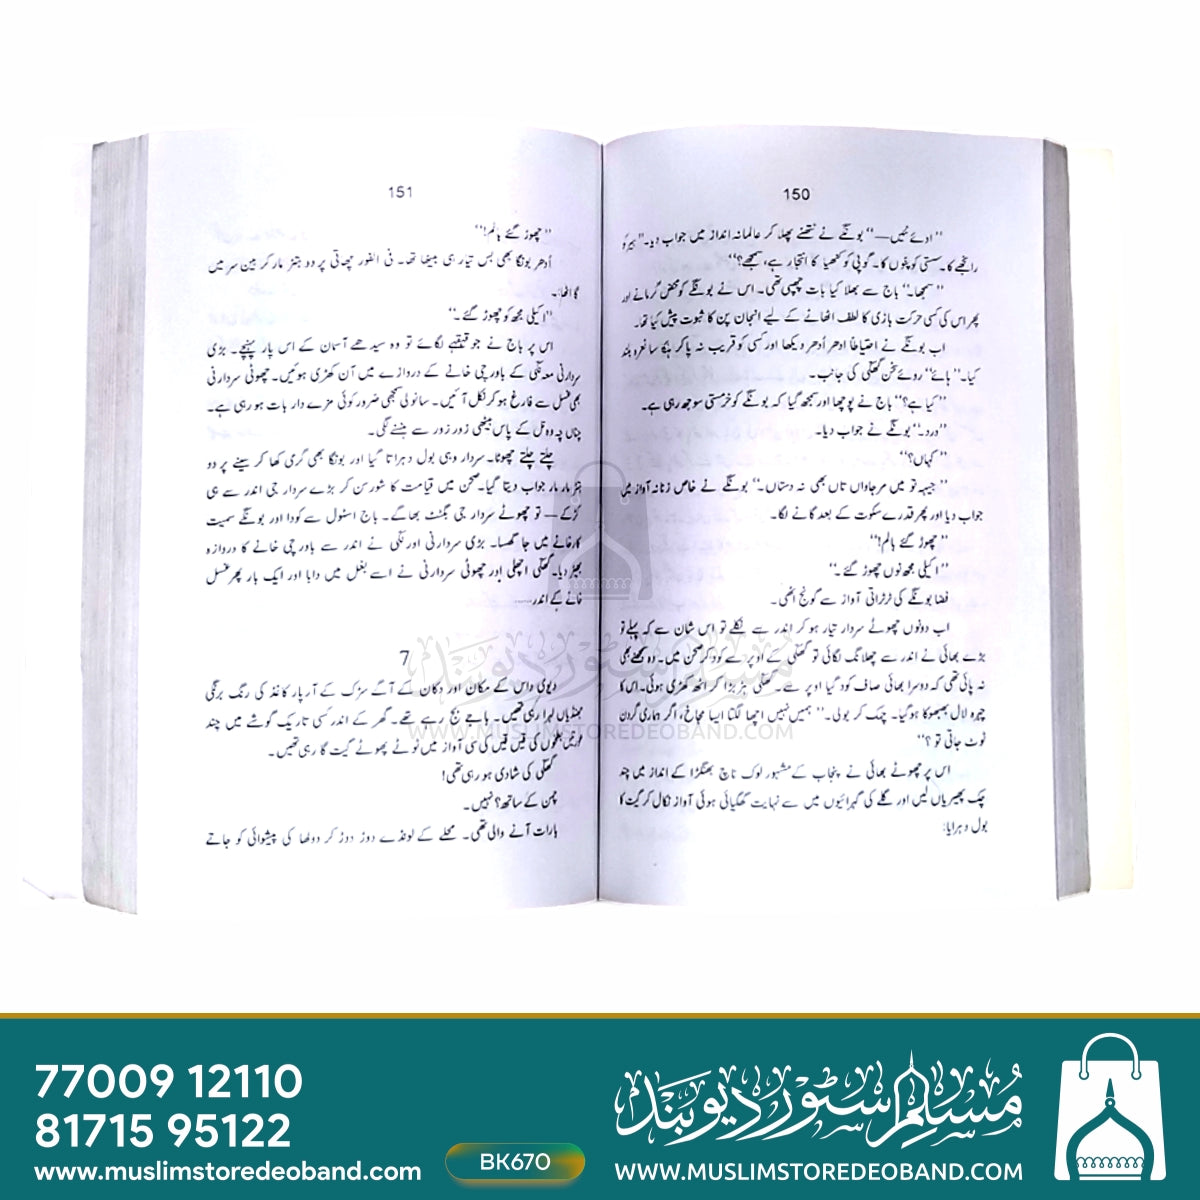 150
"اوئے نئیں— " بونگے نے نتھنے پھلا کر عالمانہ انداز میں جواب دیا۔ "ہیر کو
رانجھے کا۔ سسّی کو پنوں کا۔ گوپی کو کنھیا کا انتجار ہے، سمجھے؟"
"سمجھا۔" باج سے بھلا کیا بات چھپی تھی۔ اس نے بونگے کو محض گرمانے اور
پھر اس کی کسی حرکت بازی کا لطف اٹھانے کے لیے انجان پن کا ثبوت پیش کیا تھا۔
اب بونگے نے احتیاطاً ادھر اُدھر دیکھا اور کسی کو قریب نہ پا کر ہلکا سا نعرہ بلند
کیا۔ "ہائے" روئے سخن گھکّی کی جانب۔
"کیا ہے؟" باج نے پوچھا اور سمجھ گیا کہ بونگے کو خرمستی سوجھ رہی ہے۔
"درد۔" بونگے نے جواب دیا۔
"کہاں؟"
"جیہہ تو میں مرجاواں تاں بھی نہ دستاں۔" بونگے نے خاص زنانہ آواز میں
جواب دیا اور پھر قدرے سکوت کے بعد گانے لگا۔
"چھوڑ گئے بالم!"
"اکیلی مجھ نوں چھوڑ گئے۔"
فضا بونگے کی ٹرٹراتی آواز سے گونج اٹھی۔
اب دونوں چھوٹے سردار تیار ہو کر اندر سے نکلے تو اس شان سے کہ پہلے تو
بڑے بھائی نے اندر سے چھلانگ لگائی تو گھکّی کے اوپر سے کود کر صحن میں۔ وہ سمجھنے بھی
نہ پائی تھی کہ دوسرا بھائی صاف کود گیا اوپر سے۔ گھکّی ہڑبڑا کر اٹھ کھڑی ہوئی۔ اس کا
چہرہ لال بھبھوکا ہوگیا۔ چمک کر بولی۔ "ہمیں نہیں اچھا لگتا ایسا مجاخ، اگر ہماری گردن
ٹوٹ جاتی تو؟"
اس پر چھوٹے بھائی نے پنجاب کے مشہور لوک ناچ بھنگڑا کے انداز میں چند
چک پھیریاں لیں اور گلے کی گہرائیوں میں سے نہایت گھگیائی ہوئی آواز نکال کر گیت کا
بول دہرایا:
151
"چھوڑ گئے بالم!"
اُدھر بونگا بھی بس تیار ہی بیٹھا تھا۔ فی الفور چھاتی پر دو ہتڑ مار کر بین سر میں
گا اٹھا۔
"اکیلی مجھ کو چھوڑ گئے۔"
اس پر باج نے جو قہقہے لگائے تو وہ سیدھے آسمان کے اس پار پہنچے۔ بڑی
سردارنی معہ نِکّی کے باورچی خانے کے دروازے میں آن کھڑی ہوئیں۔ چھوٹی سردارنی
بھی غسل سے فارغ ہو کر نکل آئیں۔ سانولی سمجھی ضرور کوئی مزے دار بات ہو رہی ہے۔
چناں چہ وہ نل کے پاس بیٹھی زور زور سے ہنسنے لگی۔
چلتے چلتے چھوٹا۔ سردار وہی بول دہراتا گیا اور بونگا بھی گرمی کھا کر سینے پر دو
ہتڑ مار مار جواب دیتا گیا۔ صحن میں قیامت کا شور سن کر بڑے سردار جی اندر سے ہی
کڑکے— تو چھوٹے سردار جی بگٹٹ بھاگے۔ باج اسٹول سے کودا اور بونگے سمیت
کارخانے میں جا گھسا۔ بڑی سردارنی اور نکّی نے اندر سے باورچی خانے کا دروازہ
بھیڑ دیا۔ گھکّی اچھلی اور چھوٹی سردارنی نے اسے بغل میں دابا اور ایک بار پھر غسل
خانے کے اندر......
7
دیوی داس کے مکان اور دکان کے آگے سڑک کے آر پار کاغذ کی رنگ برنگی
جھنڈیاں لہرا رہی تھیں۔ باجے بج رہے تھے۔ گھر کے اندر کسی تاریک گوشے میں چند
عورتیں بطخوں کی قیں قیں کی سی آواز میں ٹوٹے پھوٹے گیت گا رہی تھیں۔
گھکّی کی شادی ہو رہی تھی!
چمن کے ساتھ؟ نہیں۔
بارات آنے والی تھی۔ محلے کے لونڈے دوڑ دوڑ کر دولھا کی پیشوائی کو جاتے
مسلم سٹور دیوبند
WWW.MUSLIMSTOREDEOBAND.COM
77009 12110
81715 95122
www.muslimstoredeoband.com
BK670
مسلم سٹور دیوبند
WWW.MUSLIMSTOREDEOBAND.COM